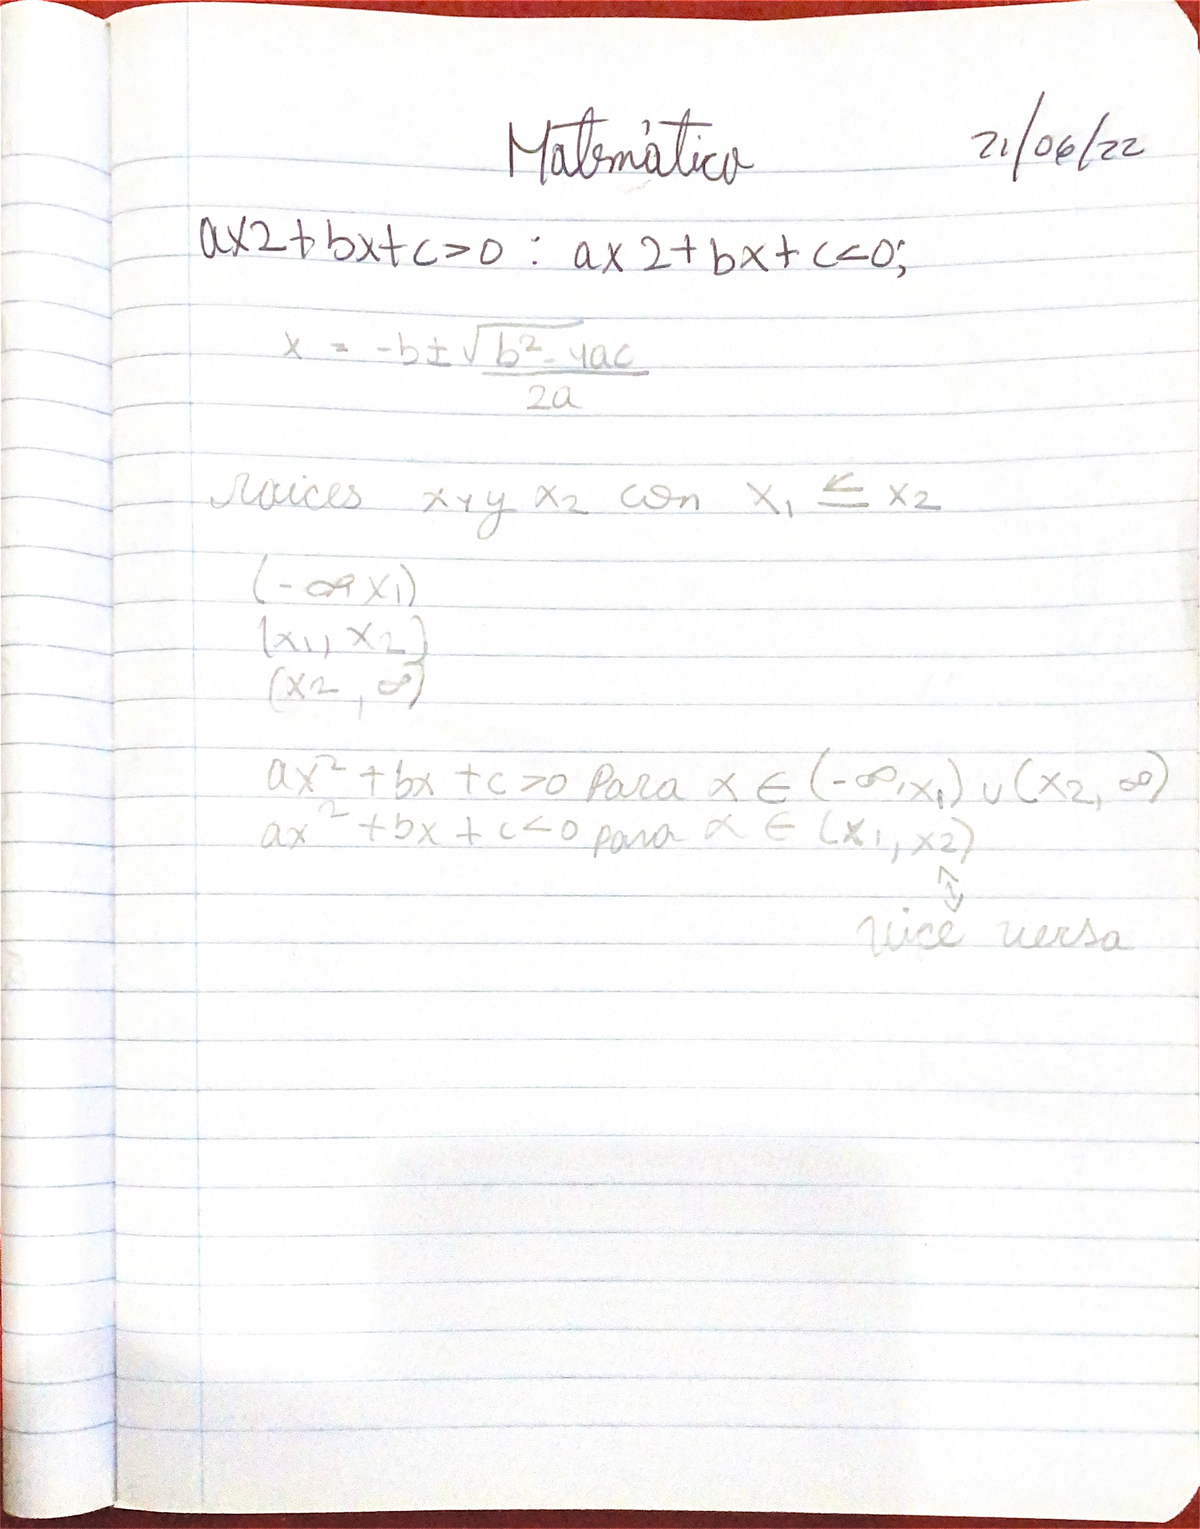 Matemática 21/06/22
ax2+bx+c>0 : ax2+bx+c<0;
x = -b± √b²-4ac
2a
raices x1 y x2 con x₁ ≤ x2
(-∞ x₁)
(x₁, x2)
(x2, ∞)
ax² +bx +c >0 Para x ∈ (-∞,x₁) ∪ (x2, ∞)
ax² +bx + c<0 para x ∈ (x₁, x2)
vice versa